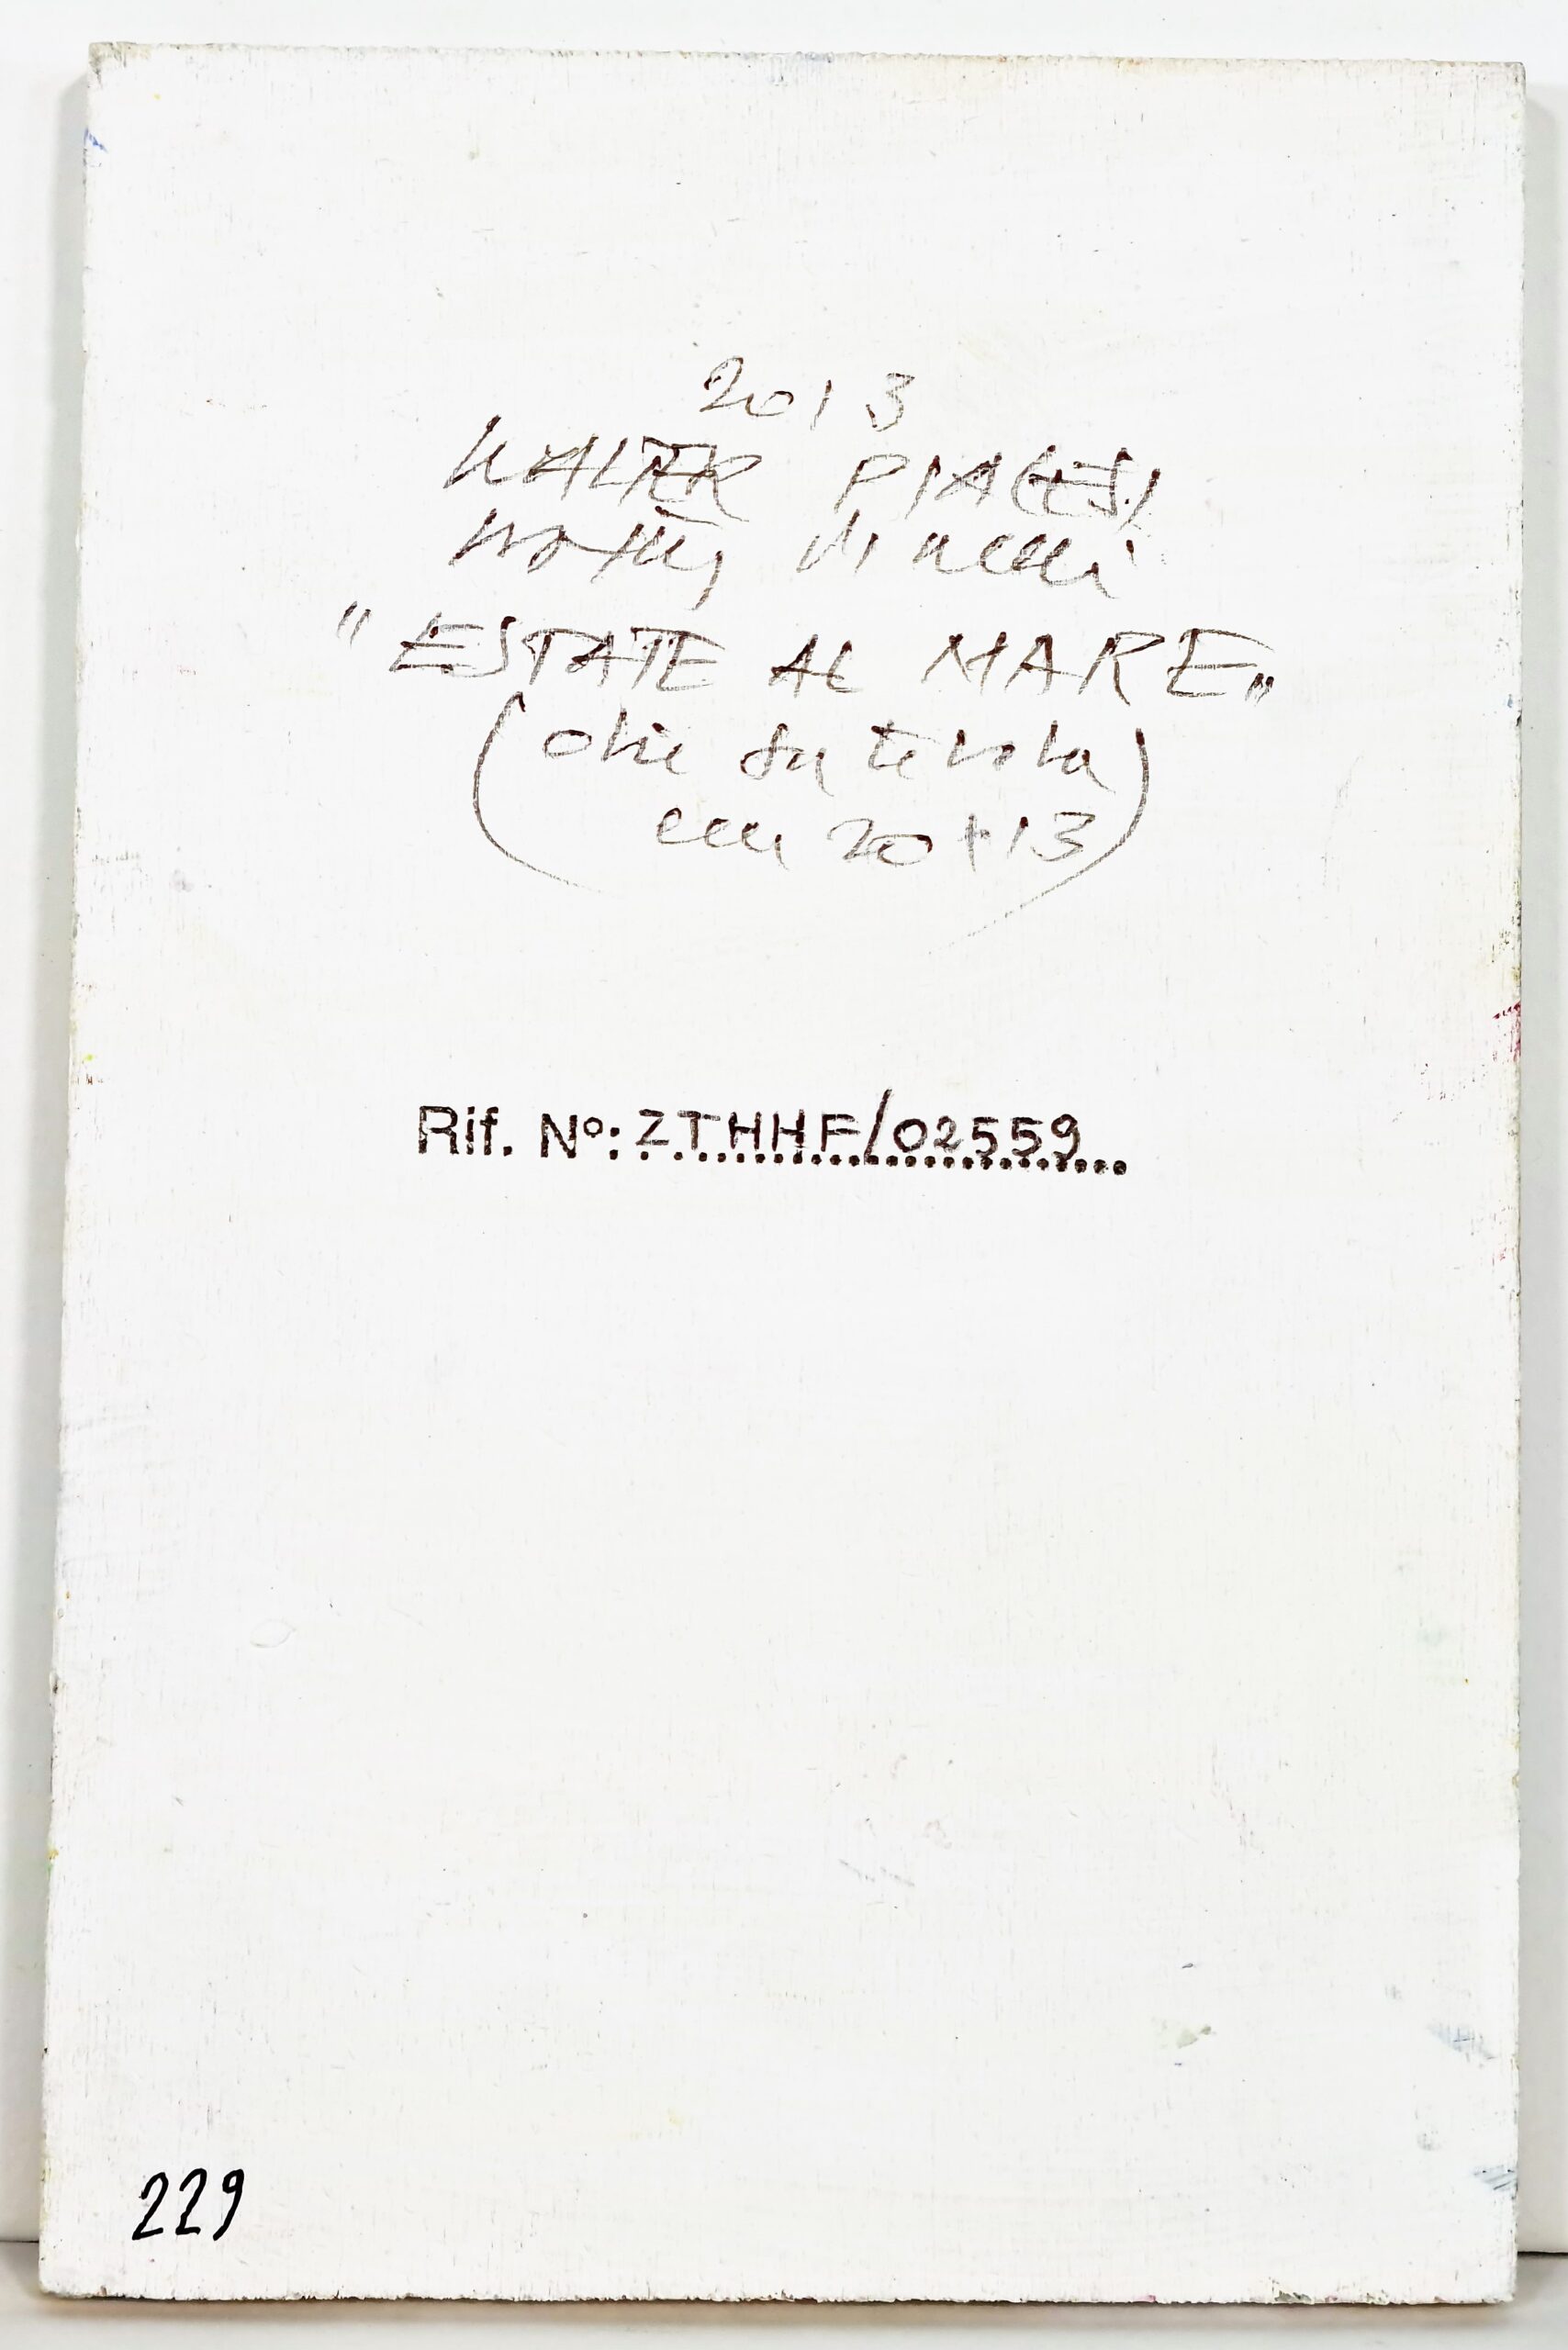 2013
WALTER PIACESI
"ESTATE AL MARE"
(olio su tavola
cm 20+13)
Rif. Nº: ZTHHF/02559
229